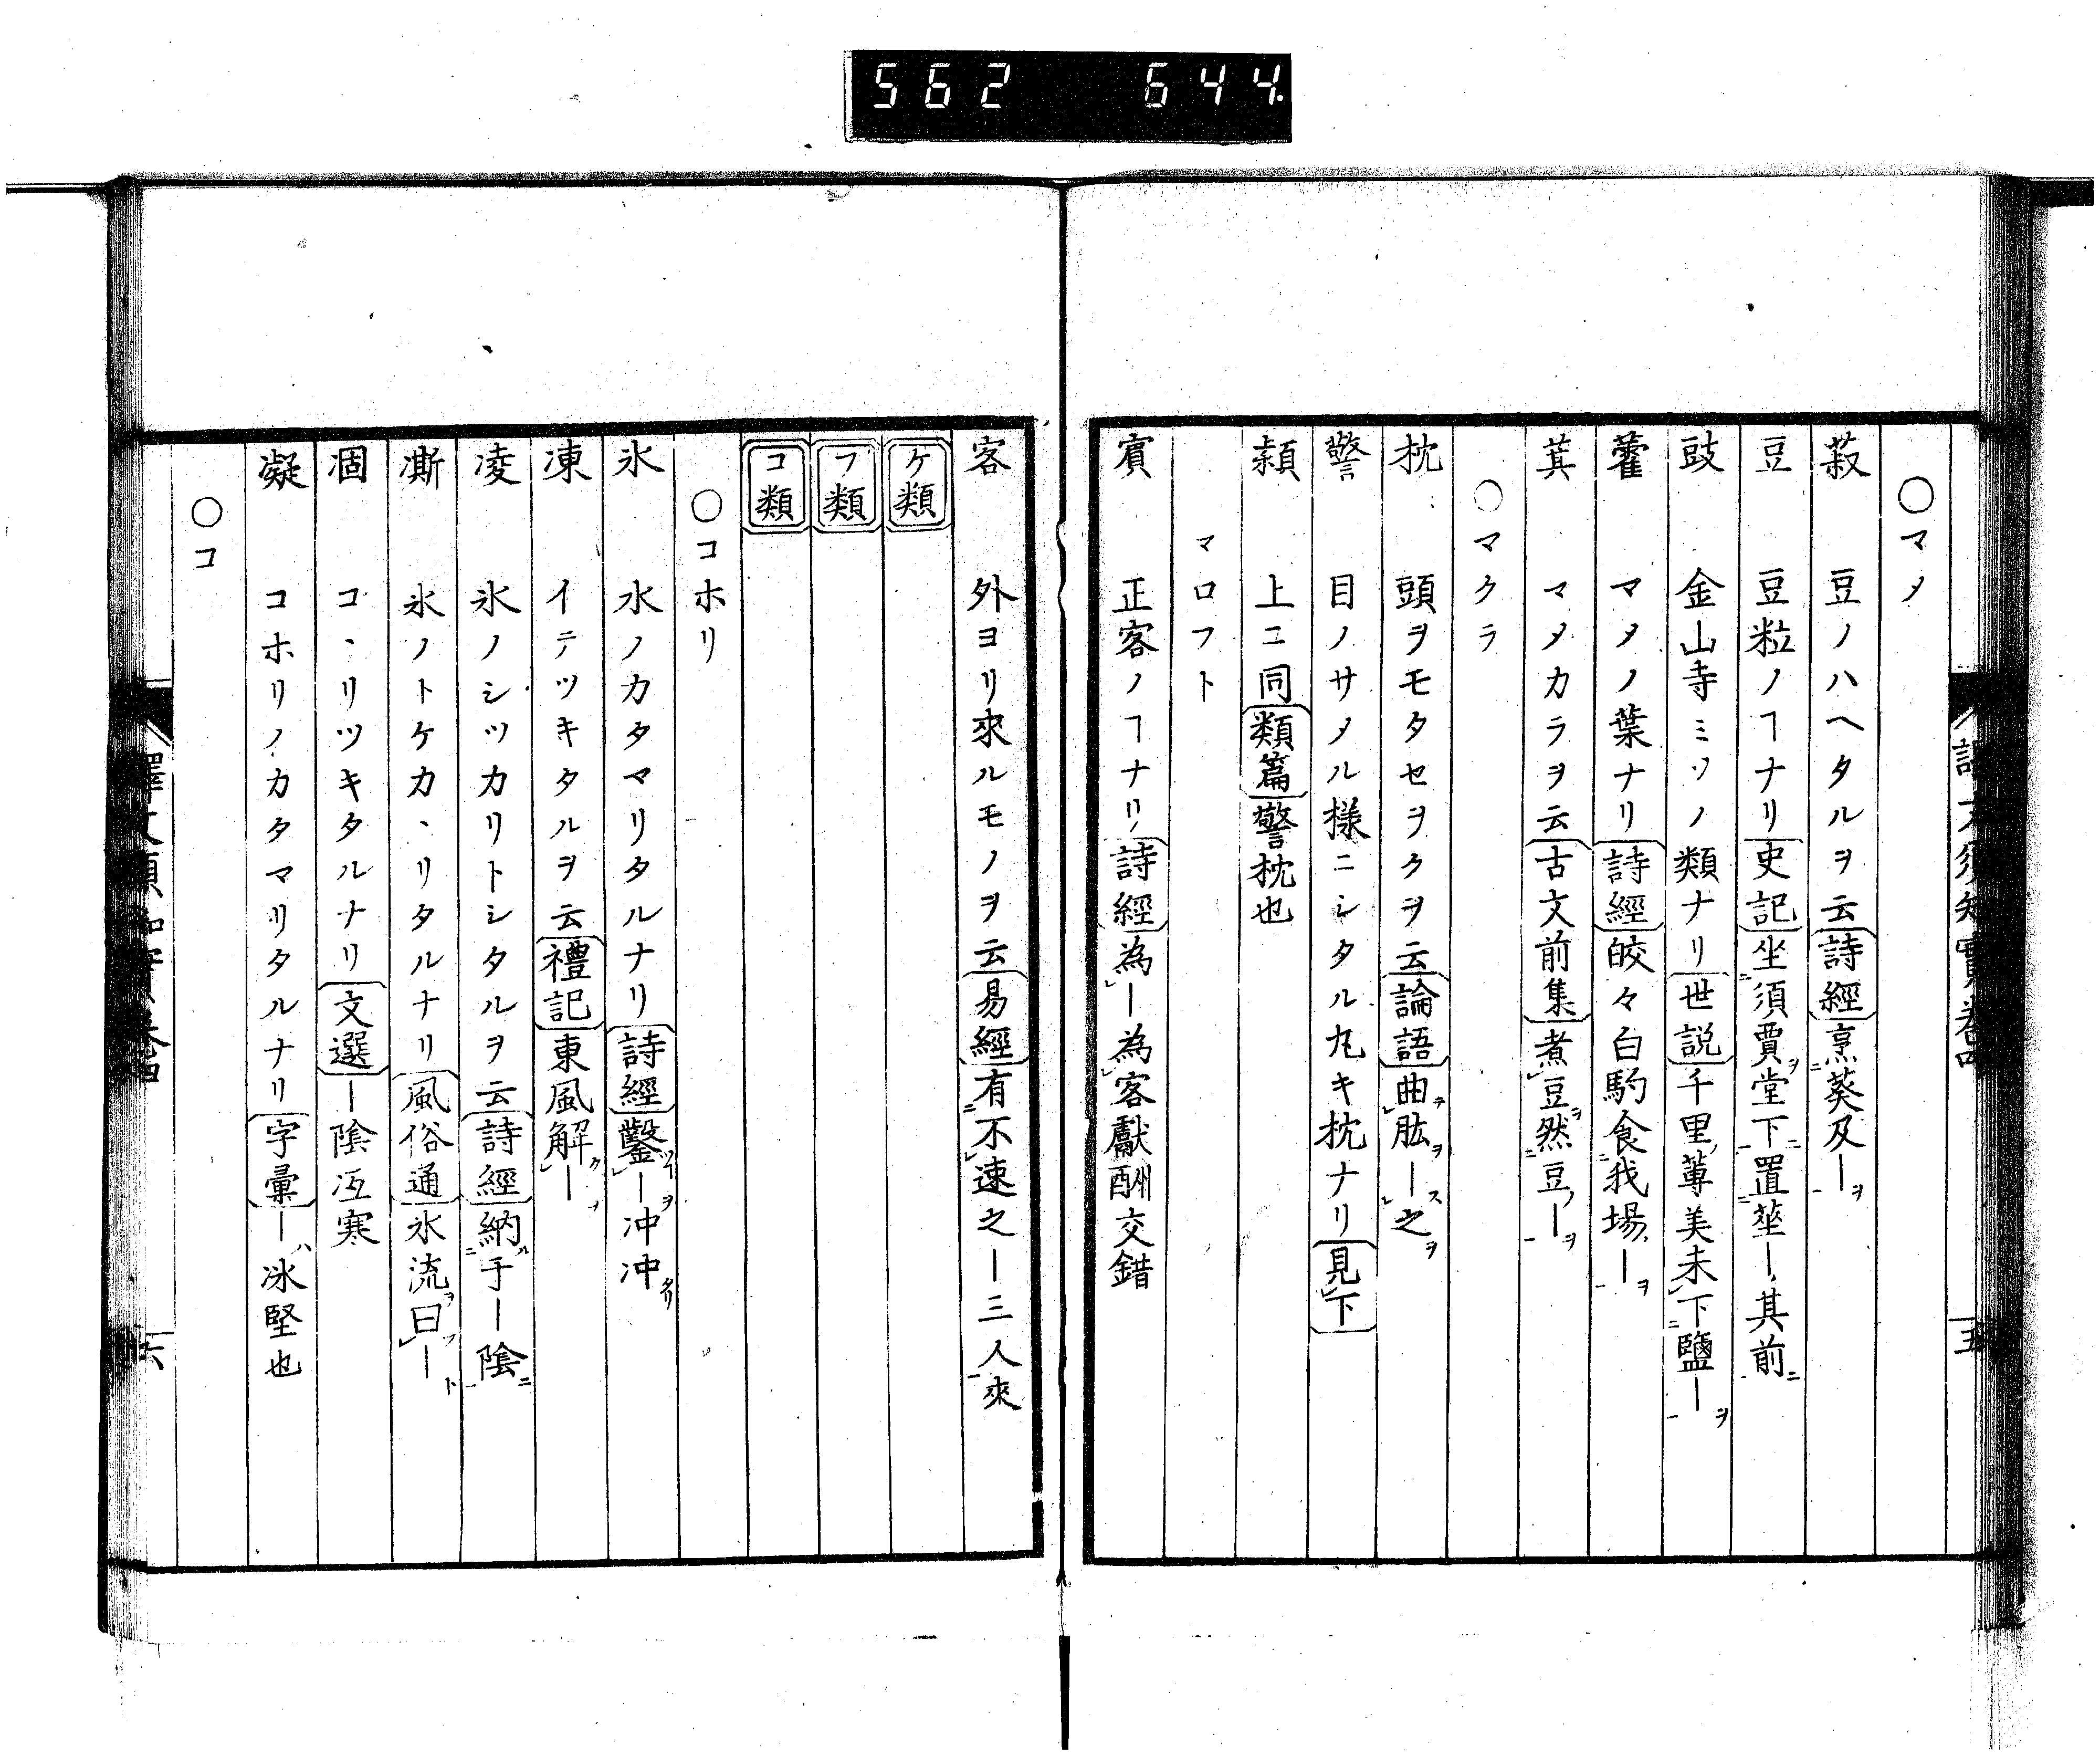 562 644
譯文須知實卷四 五
○マメ
菽 豆ノハヘタルヲ云詩經烹葵及ーヲ
豆 豆粒ノヿナリ史記坐須賈ヲ堂下ニ置莝ー其前ニ
豉 金山寺ミソノ類ナリ世説千里蓴美未下鹽ーヲ
藿 マメノ葉ナリ詩經皎々白駒食我場ーヲ
萁 マメカラヲ云古文前集煮豆ヲ然豆ノーヲ
○マクラ
枕 頭ヲモタセヲクヲ云論語曲テ肱ヲースヲ之
警 目ノサメル様ニシタル丸キ枕ナリ見下
熲 上ニ同類篇警枕也
マロフト
賓 正客ノヿナリ詩經為ー為客獻酬交錯
客 外ヨリ來ルモノヲ云易經有不速之ー三人來
ケ類
フ類
コ類
○コホリ
氷 水ノカタマリタルナリ詩經鑿ーヲ冲冲タリ
凍 イテツキタルヲ云禮記東風解クー
凌 氷ノシツカリトシタルヲ云詩經納ル于ー陰ニ
凘 氷ノトケカヽリタルナリ風俗通氷流ヲ曰フート
涸 コヽリツキタルナリ文選ー陰冱寒
凝 コホリノカタマリタルナリ字彙ーハ冰堅也
○コ
譯文須知實卷四 六